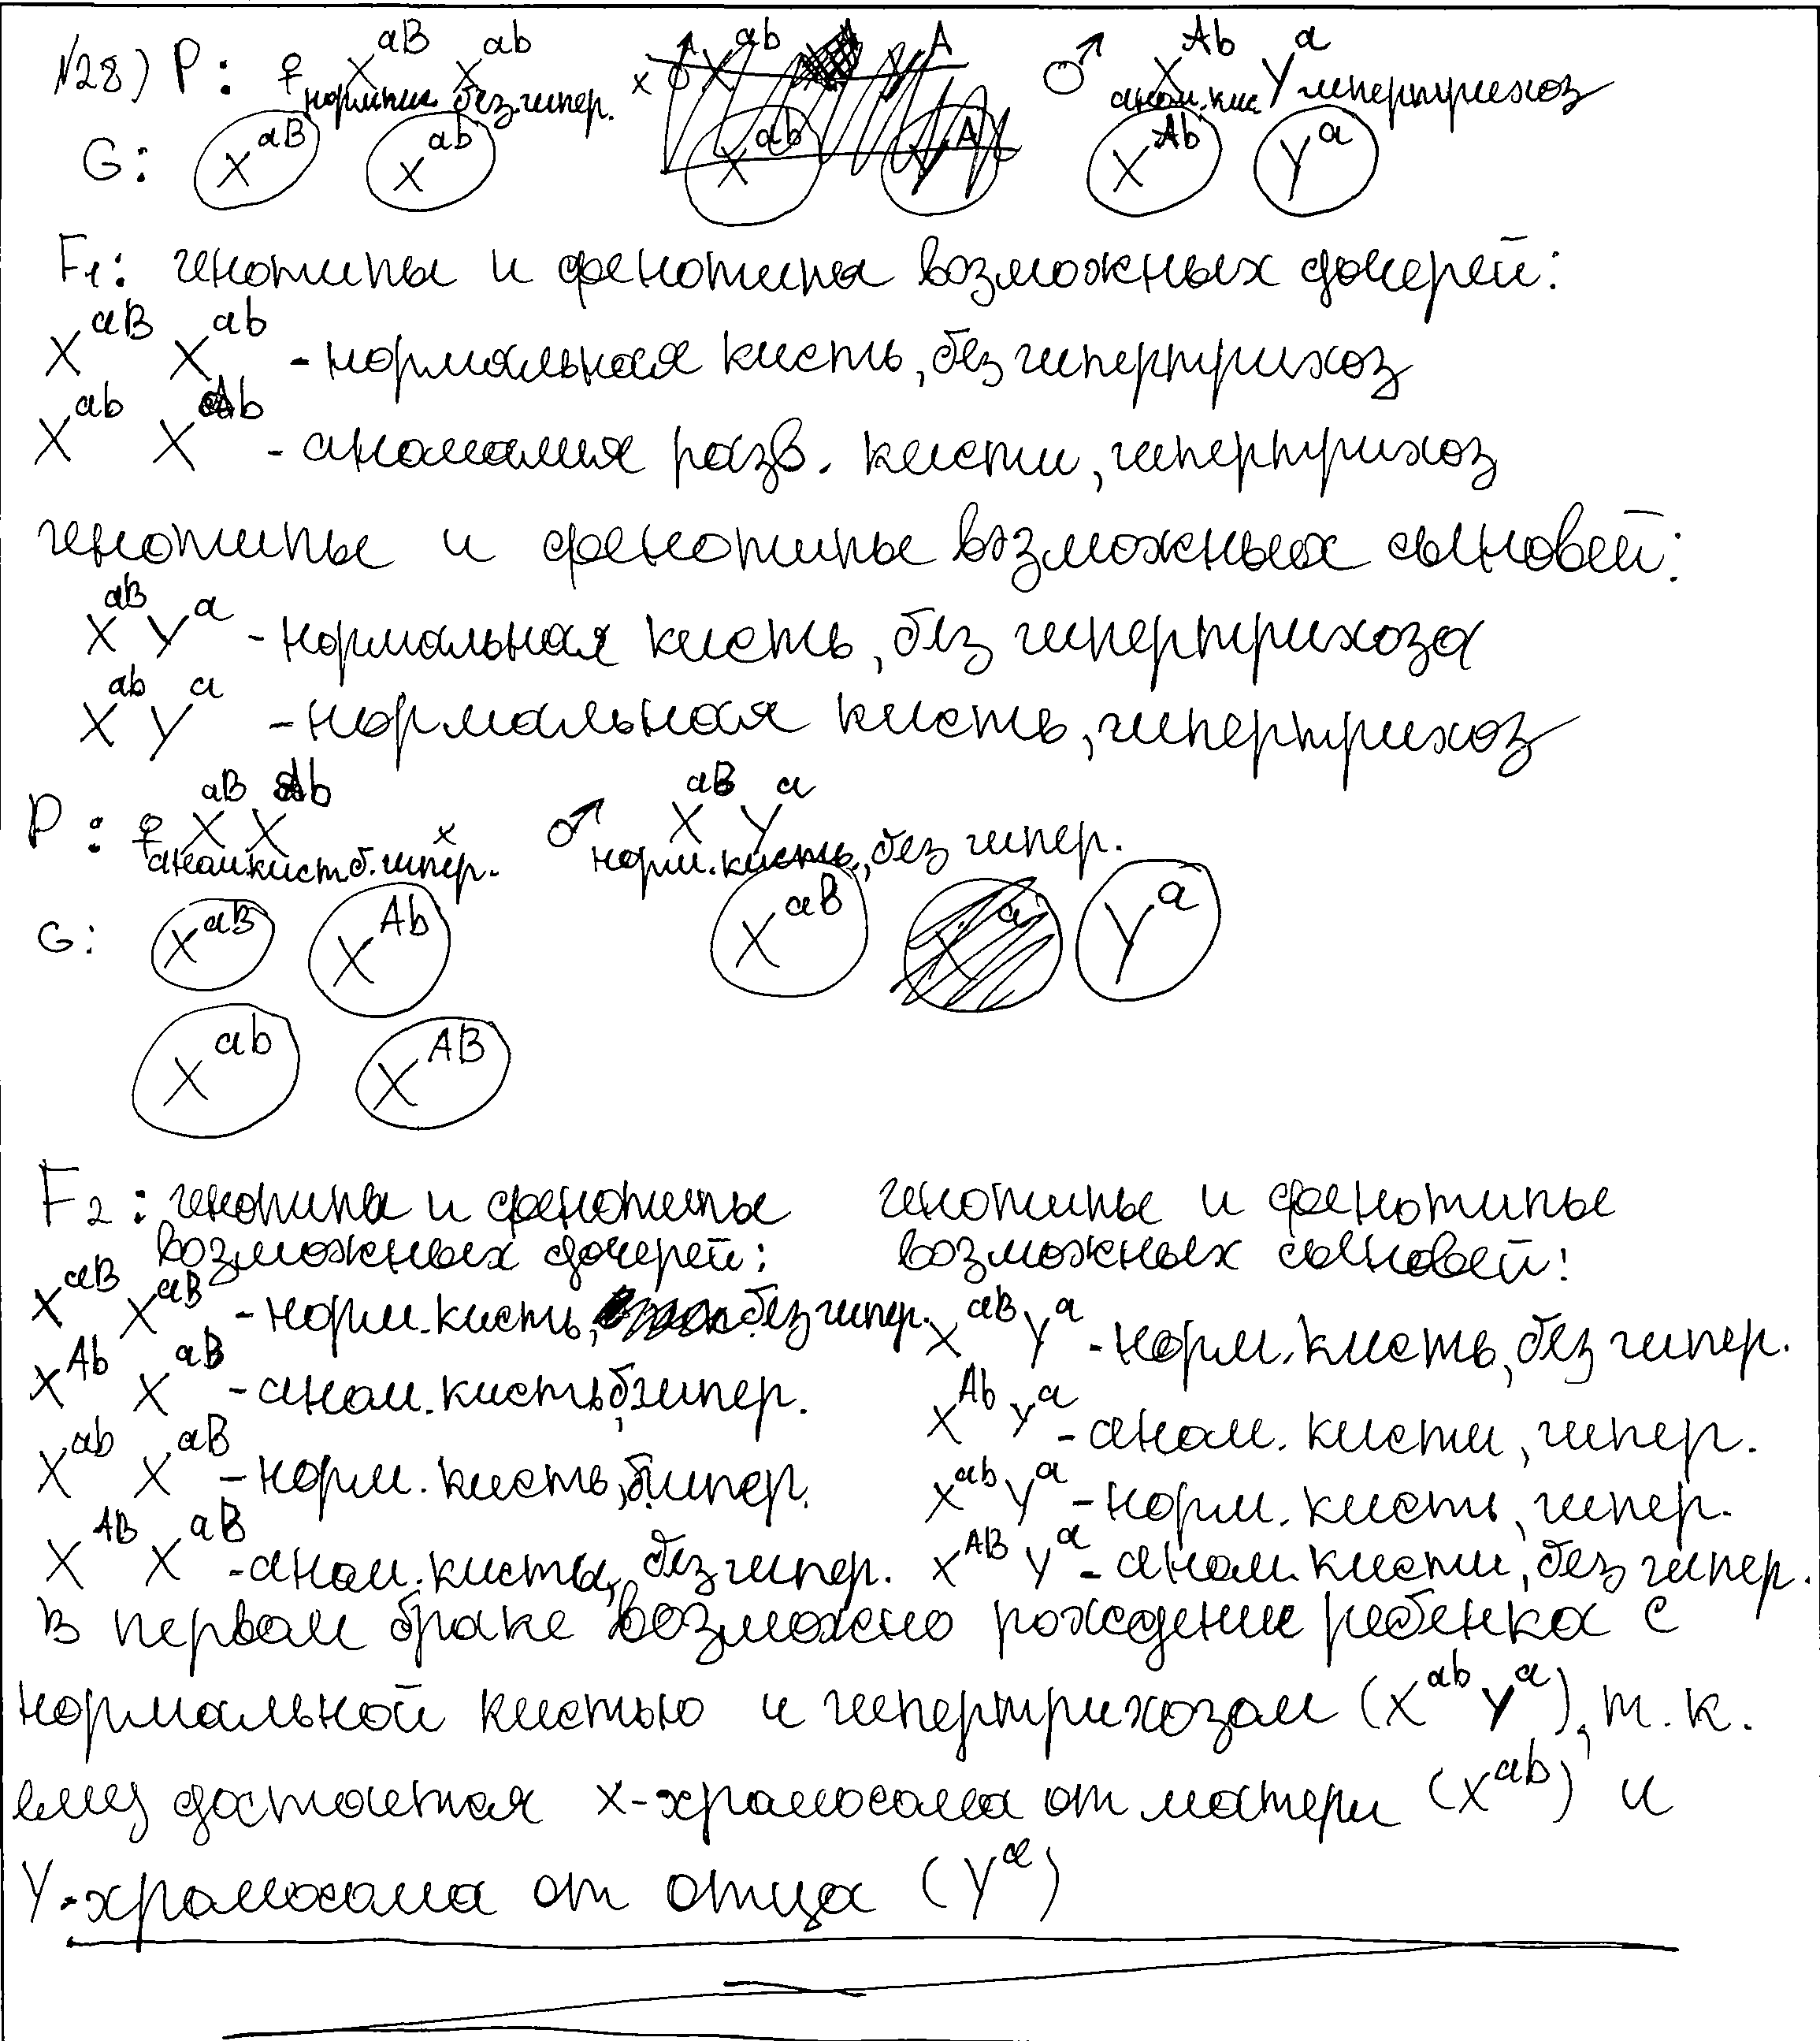 №28) P: ♀ X^aB X^ab x ♂ X^Ab Y^a
норм.кис. без гипер. аном.кис гипертрихоз
G: X^aB X^ab X^Ab Y^a
F1: генотипы и фенотипы возможных дочерей:
X^aB X^ab - нормальная кисть, без гипертрихоз
X^ab X^Ab - аномалия разв. кисти, гипертрихоз
генотипы и фенотипы возможных сыновей:
X^aB Y^a - нормальная кисть, без гипертрихоза
X^ab Y^a - нормальная кисть, гипертрихоз
P: ♀ X^aB X^Ab x ♂ X^aB Y^a
аном.кист б.гипер. норм.кисть, без гипер.
G: X^aB X^Ab X^aB Y^a
X^ab X^AB
F2: генотипы и фенотипы генотипы и фенотипы
возможных дочерей: возможных сыновей:
X^aB X^aB - норм.кисть, без гипер. X^aB Y^a - норм.кисть, без гипер.
X^Ab X^aB - аном.кисть, б.гипер. X^Ab Y^a - аном. кисти, гипер.
X^ab X^aB - норм.кисть, б.гипер. X^ab Y^a - норм. кисть, гипер.
X^AB X^aB - аном.кисты, без гипер. X^AB Y^a - аном.кисти, без гипер.
В первом браке возможно рождение ребенка с
нормальной кистью и гипертрихозом (X^ab Y^a), т.к.
ему достается х-хромосома от матери (X^ab) и
Y-хромосома от отца (Y^a)